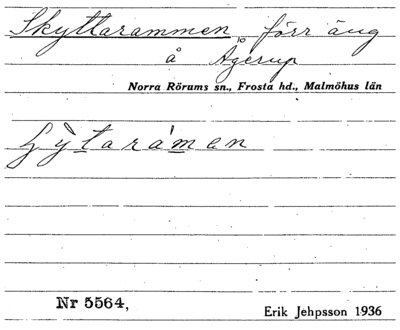 Skyttarammen, förr äng
å Agerup
Norra Rörums sn., Frosta hd., Malmöhus län
Nr 5564,
Erik Jehpsson 1936